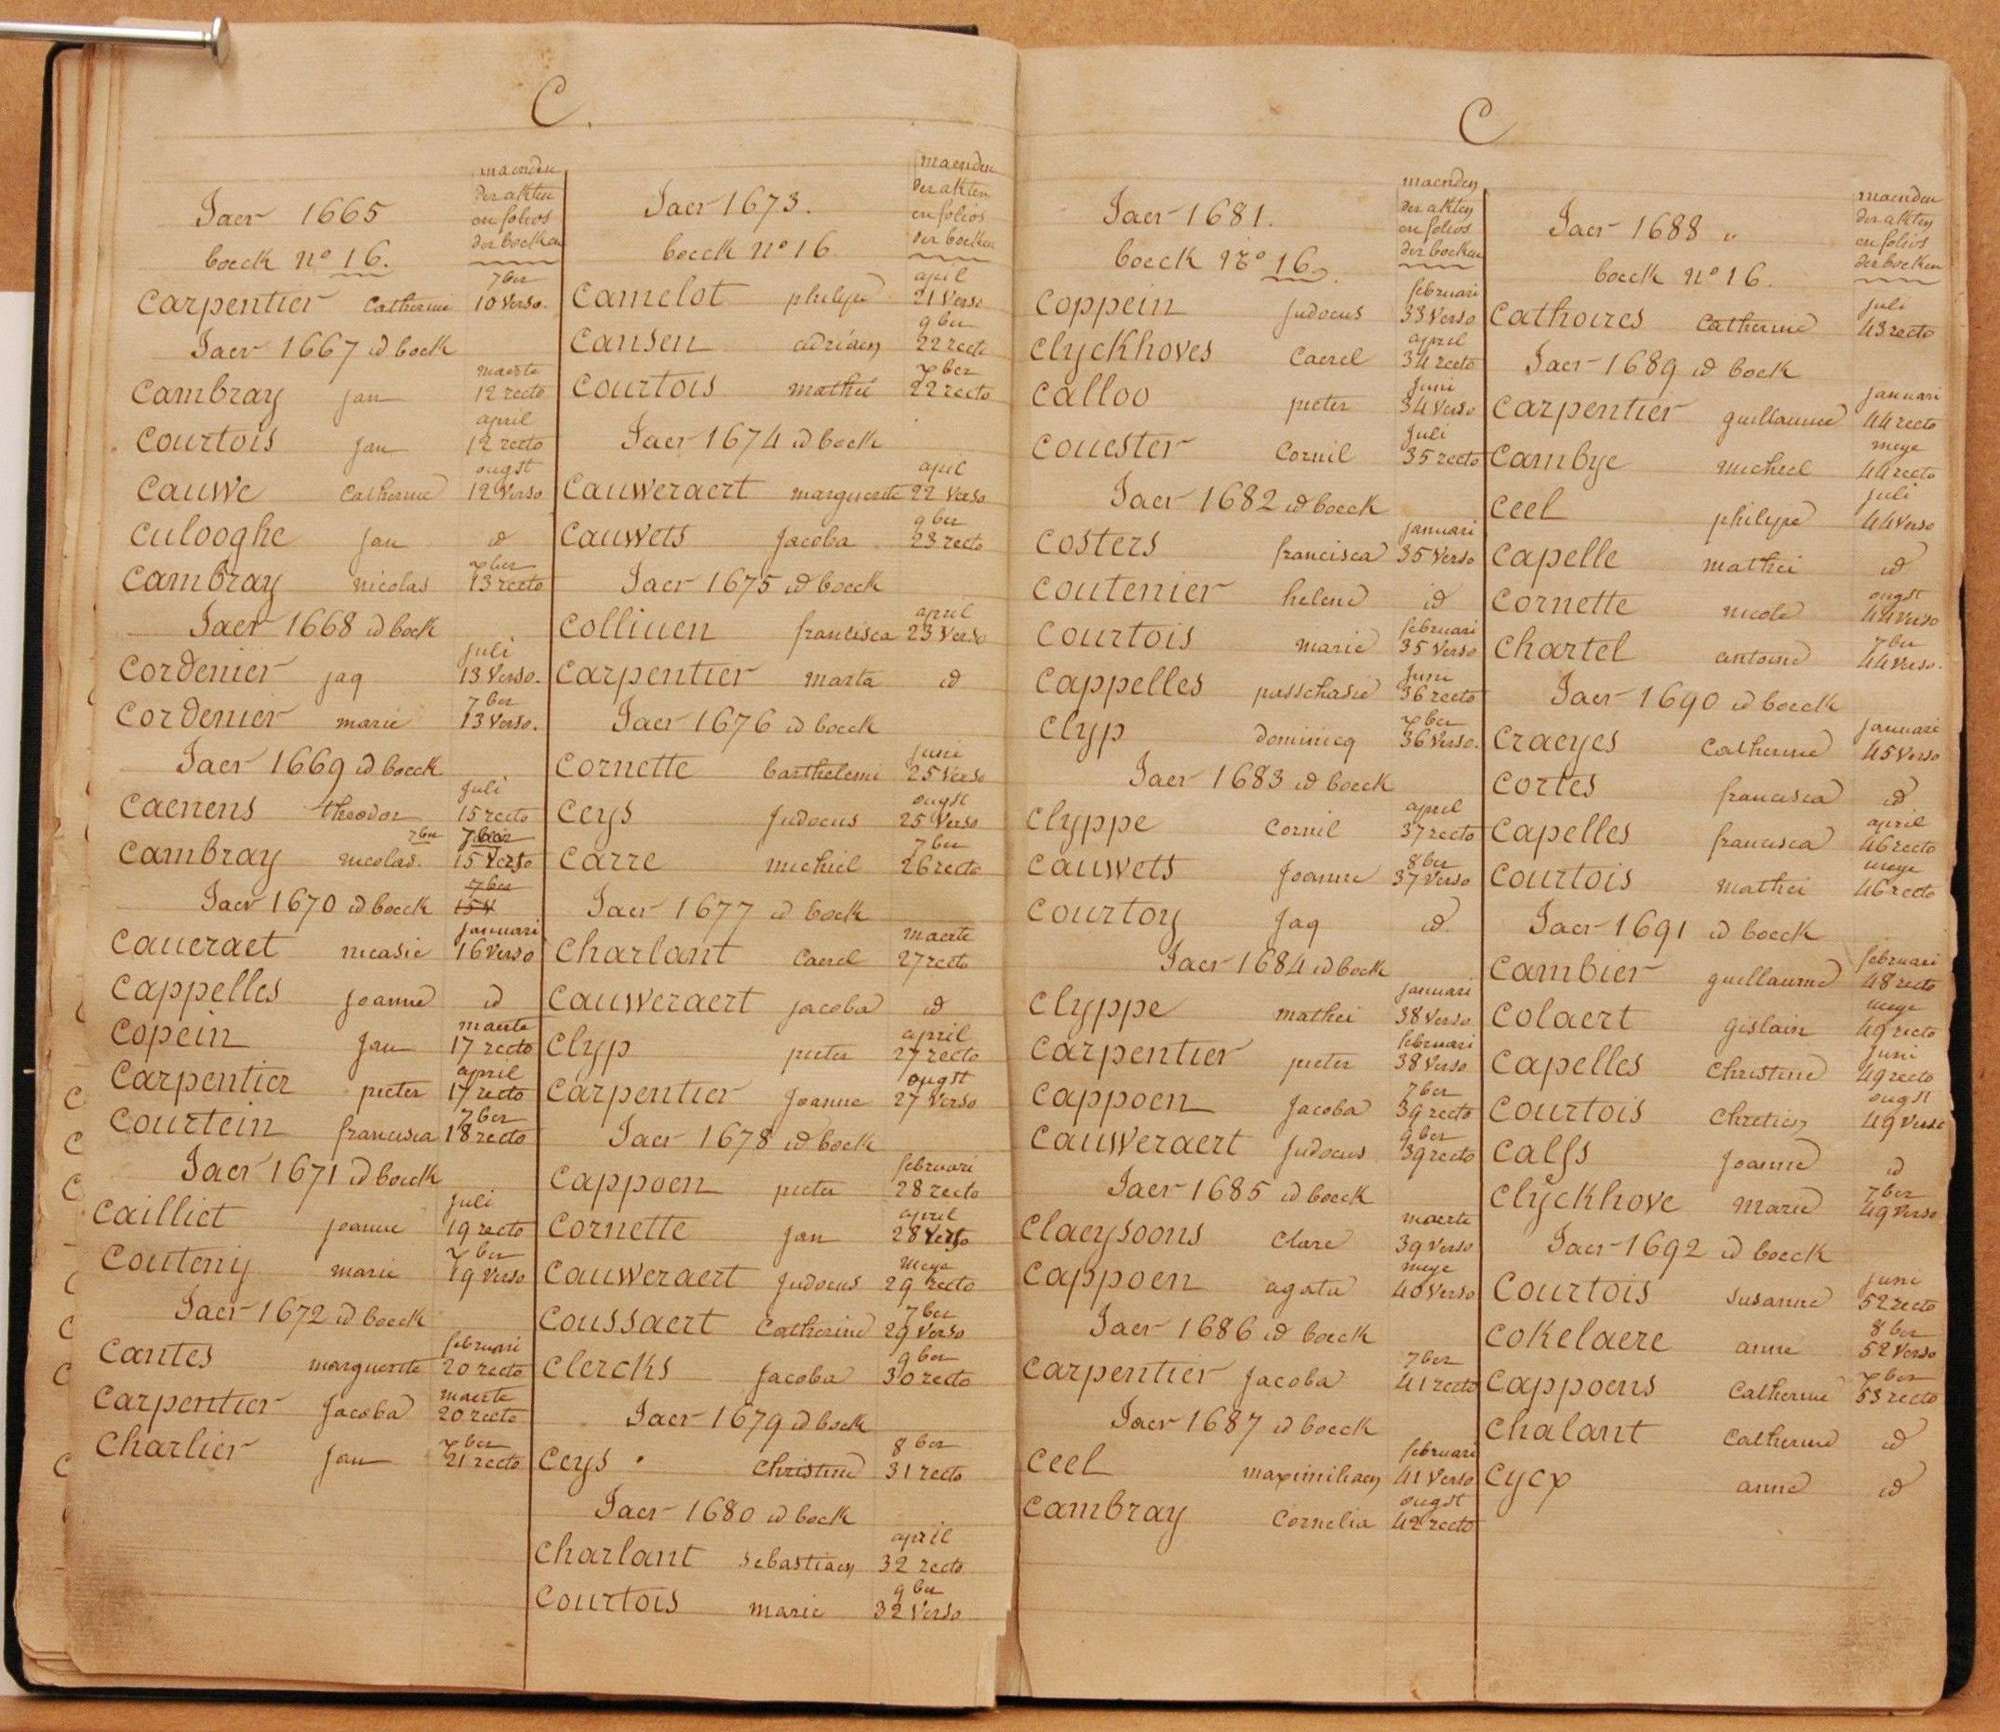 C.
Jaer 1665
boeck no 16.
maenden
der akten
en folios
der boeken
7ber
Carpentier Catherine 10 verso.
Jaer 1667 id boek
maerte
Cambray jan 12 recto
april
Courtois jan 12 recto
ougst
Cauwe Catherine 12 verso
Culooghe jan id
xber
Cambray nicolas 13 recto
Jaer 1668 id boek
juli
Cordenier jaq 13 verso.
7ber
Cordenier marie 13 verso.
Jaer 1669 id boeck
juli
Caenens theodor 15 recto
7ber
Cambray nicolas. 15 verso
7ber
15 v
Jaer 1670 id boeck
januari
Caueraet nicasie 16 verso
Cappelles joanne id
maerte
Copein jan 17 recto
april
Carpentier pieter 17 recto
7ber
Courtein francisca 18 recto
Jaer 1671 id boeck
juli
Cailliet joanne 19 recto
xber
Couteny marie 19 verso
Jaer 1672 id boeck
februari
Cantes marguerite 20 recto
maerte
Carpentier jacoba 20 recto
xber
Charlier jan 21 recto
Jaer 1673.
boeck no 16
maenden
der akten
en folios
der boeken
april
Camelot philipe 21 verso
9ber
Cansen adriaen 22 recto
xber
Courtois mathei 22 recto
Jaer 1674 id boek
april
Cauweraert marguerite 22 verso
9ber
Cauwets jacoba 23 recto
Jaer 1675 id boeck
april
Colliuen francisca 23 verso
Carpentier marta id
Jaer 1676 id boeck
juni
Cornette barthelemi 25 verso
ougst
Ceys judocus 25 verso
7ber
Carre michiel 26 recto
Jaer 1677 id boek
maerte
Charlant Carel 27 recto
Cauweraert jacoba id
april
Clyp pieter 27 recto
ougst
Carpentier joanne 27 verso
Jaer 1678 id boek
februari
Cappoen pieter 28 recto
april
Cornette jan 28 verso
meye
Cauweraert judocus 29 recto
7ber
Coussaert Catherine 29 verso
9ber
Clercks jacoba 30 recto
Jaer 1679 id boek
8ber
Ceys christine 31 recto
Jaer 1680 id boek
april
Charlant sebastiaen 32 recto
9ber
Courtois marie 32 verso
C
Jaer 1681.
boeck no 16.
maenden
der akten
en folios
der boeken
februari
Coppein judocus 33 verso
april
Clyckhoves Caerel 34 recto
juni
Calloo pieter 34 verso
juli
Couester Cornil 35 recto
Jaer 1682 id boeck
januari
Costers francisca 35 verso
Coutenier helene id
februari
Courtois marie 35 verso
juni
Cappelles passchasie 36 recto
xber
Clyp dominicq 36 verso.
Jaer 1683 id boeck
april
Clyppe Cornil 37 recto
8ber
Cauwets joanne 37 verso
Courtoy jaq id.
Jaer 1684 id boek
januari
Clyppe mathei 38 verso
februari
Carpentier pieter 38 verso
7ber
Cappoen jacoba 39 recto
9ber
Cauweraert judocus 39 recto
Jaer 1685 id boeck
maerte
Claeysoons Clare 39 verso
meye
Cappoen agata 40 verso
Jaer 1686 id boeck
7ber
Carpentier jacoba 41 recto
Jaer 1687 id boeck
februari
Ceel maximiliaen 41 verso
ougst
Cambray Cornelia 42 recto
Jaer 1688
boeck no 16.
maenden
der akten
en folios
der boeken
juli
Cathoires Catherine 43 recto
Jaer 1689 id boek
januari
Carpentier guillaume 44 recto
meye
Cambye michiel 44 recto
juli
Ceel philipe 44 verso
Capelle mathei id
ougst
Cornette nicole 44 verso
7ber
Chartel antoine 44 verso.
Jaer 1690 id boeck
januari
Craeyes Catherine 45 verso
Cortes francisca id
april
Capelles francisca 46 recto
meye
Courtois mathei 46 recto
Jaer 1691 id boeck
februari
Cambier guillaume 48 recto
meye
Colaert gislain 49 recto
juni
Capelles Christine 49 recto
ougst
Courtois Chretien 49 verso
Calfs joanne id
7ber
Clyckhove marie 49 verso
Jaer 1692 id boeck
juni
Courtois susanne 52 recto
8ber
Cokelaere anne 52 verso
xber
Cappoens Catherine 53 recto
Chalant Catherine id
Cycx anne id